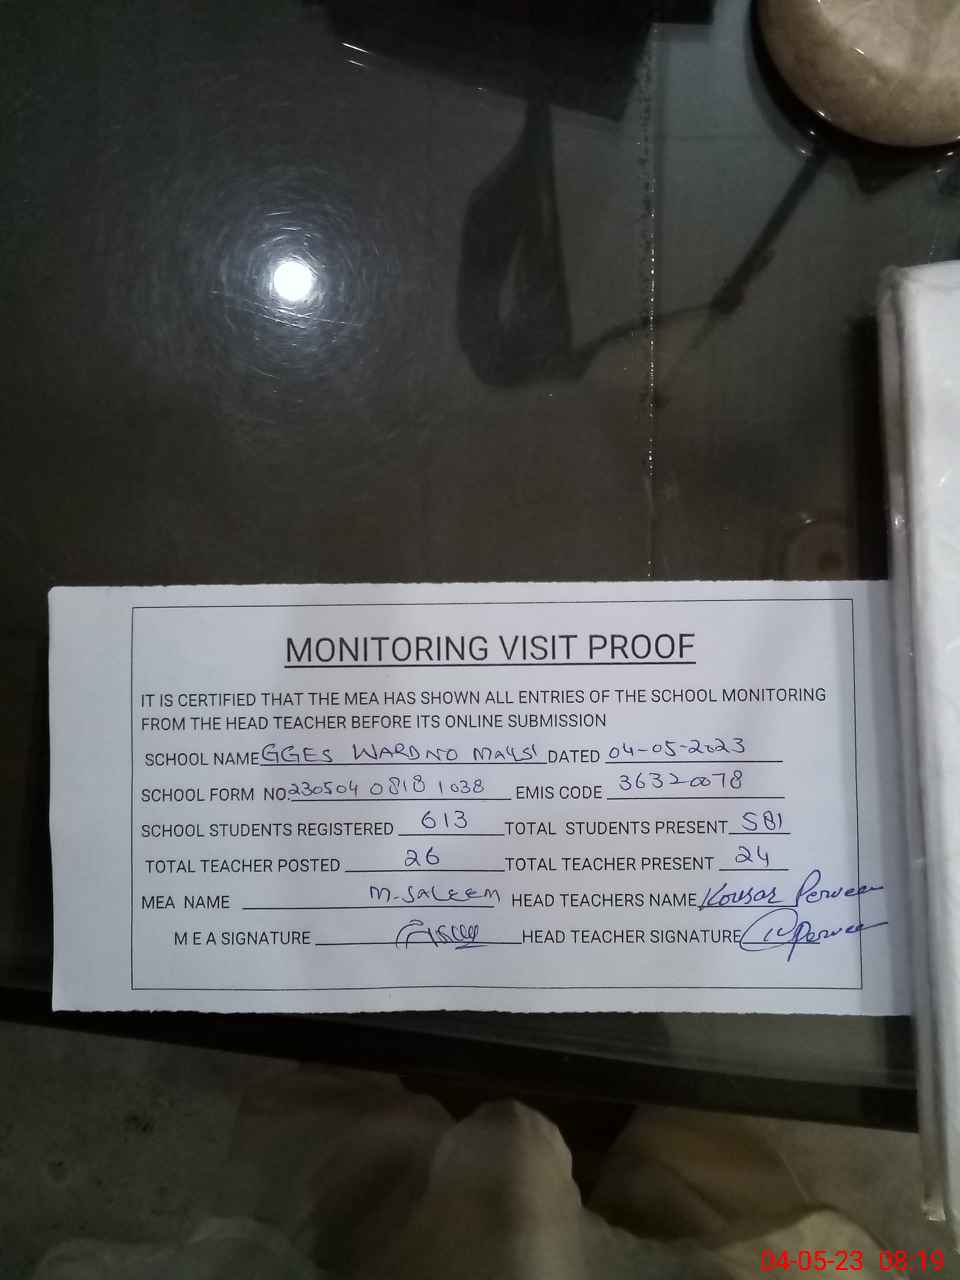 MONITORING VISIT PROOF
IT IS CERTIFIED THAT THE MEA HAS SHOWN ALL ENTRIES OF THE SCHOOL MONITORING
FROM THE HEAD TEACHER BEFORE ITS ONLINE SUBMISSION
SCHOOL NAME GGES WARD NO MAYSI DATED 04-05-2023
SCHOOL FORM NO. 230504 0818 1038 EMIS CODE 36320078
SCHOOL STUDENTS REGISTERED 613 TOTAL STUDENTS PRESENT 581
TOTAL TEACHER POSTED 26 TOTAL TEACHER PRESENT 24
MEA NAME M.SALEEM HEAD TEACHERS NAME Kousar Perveen
M E A SIGNATURE HEAD TEACHER SIGNATURE Perveen
04-05-23 08:19